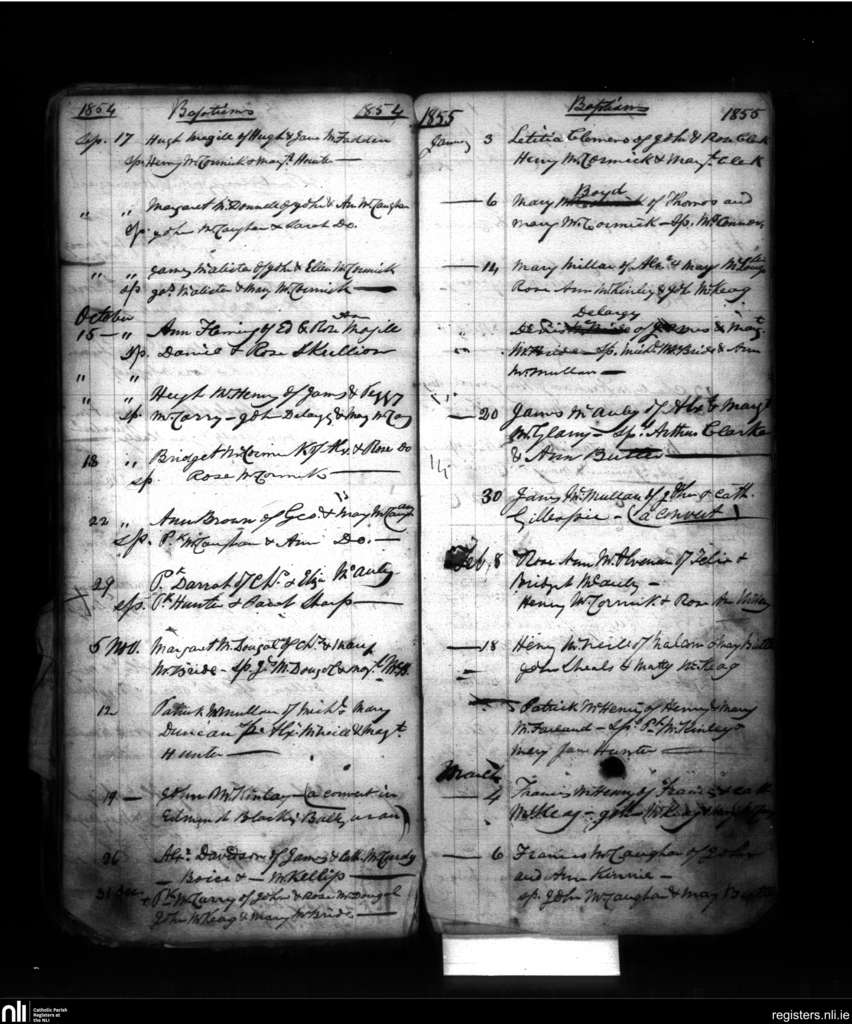 1854 Baptisms 1854
Sep. 17 Hugh Magill of Hugh & Jane McFadden
sp. Henry McCormick & Margt. Hunter —
" " Margaret McDonnell of John & Ann McCaughan
sp. John McCaughan & Sarah Do.
" " James McAlister of John & Ellen McCormick
sp. Jas. McAlister & Mary McCormick —
October
15 — " Ann Fleming of Ed & Rose Ann Magill
sp. Daniel & Rose Skullion
" "
" " Hugh McHenry of James & Peggy
sp. McCarry — John Delargy & Mary McCay
18 " Bridget McCormick of Alx. & Rose Do
sp. Rose McCormick —
22 " Ann Brown of Geo. & Mary McCaughan
sp. Pk. McCaughan & Ann Do. —
29 Pk. Darrah of Chs. & Eliz McAuley
sp. Pk Hunter & Sarah Sharp —
5 Nov. Margaret McDougal of Chs. & Mary
McBride — sp. Js. McDougal & Margt. McB.
12 Patrick McMullan of Michl. & Mary
Duncan sp. Alx. McNeill & Magt.
Hunter —
19 — John McKinlay — (a convert in
Edmund Blacks, Ballyucan)
26 Alxr. Davidson of James & Cath. McCurdy
— Boice & — McKellip —
31 Dec. Pk. McCarry of John & Rose McDougal
John McKeag & Mary McBride —
1855 Baptisms 1855
January 3 Letitia Clemens of John & Rose Clark
Henry McCormick & Margt. Clark
— 6 Mary Boyd of Thomas and
Mary McCormick — Sp. McConnon
— 14 Mary Millar of Alxr. & Mary
Rose Ann McKinley & John McKeag
Delargy
of James & Magt.
McBride — Sp. Michl. McBride & Ann
McMullan —
— 20 James McAuley of Alxr. & Margt
McGlarry — Sps. Arthur Clarke
& Ann Butler —
30 James McMullan of John & Cath.
Gillespie — (a convert)
Feb. 8 Rose Ann McIlvenan of Felix &
Bridget McAuley —
Henry McCormick & Rose Ann
— 18 Henry McNeill of Malcom & Mary Butler
John Sheals & Matty McKeag
— Patrick McHenry of Henry & Mary
McFarland — Sp. Pk. McKinley &
Mary Jane Hunter —
March
— 4 Francis McHenry of Francis & Cath
McKeag — John McKeag &
— 6 Francis McCaughan of John
and Ann Kinnie —
sp. John McCaughan & Mary Butler
nli
Catholic Parish
Registers at
the NLI
registers.nli.ie